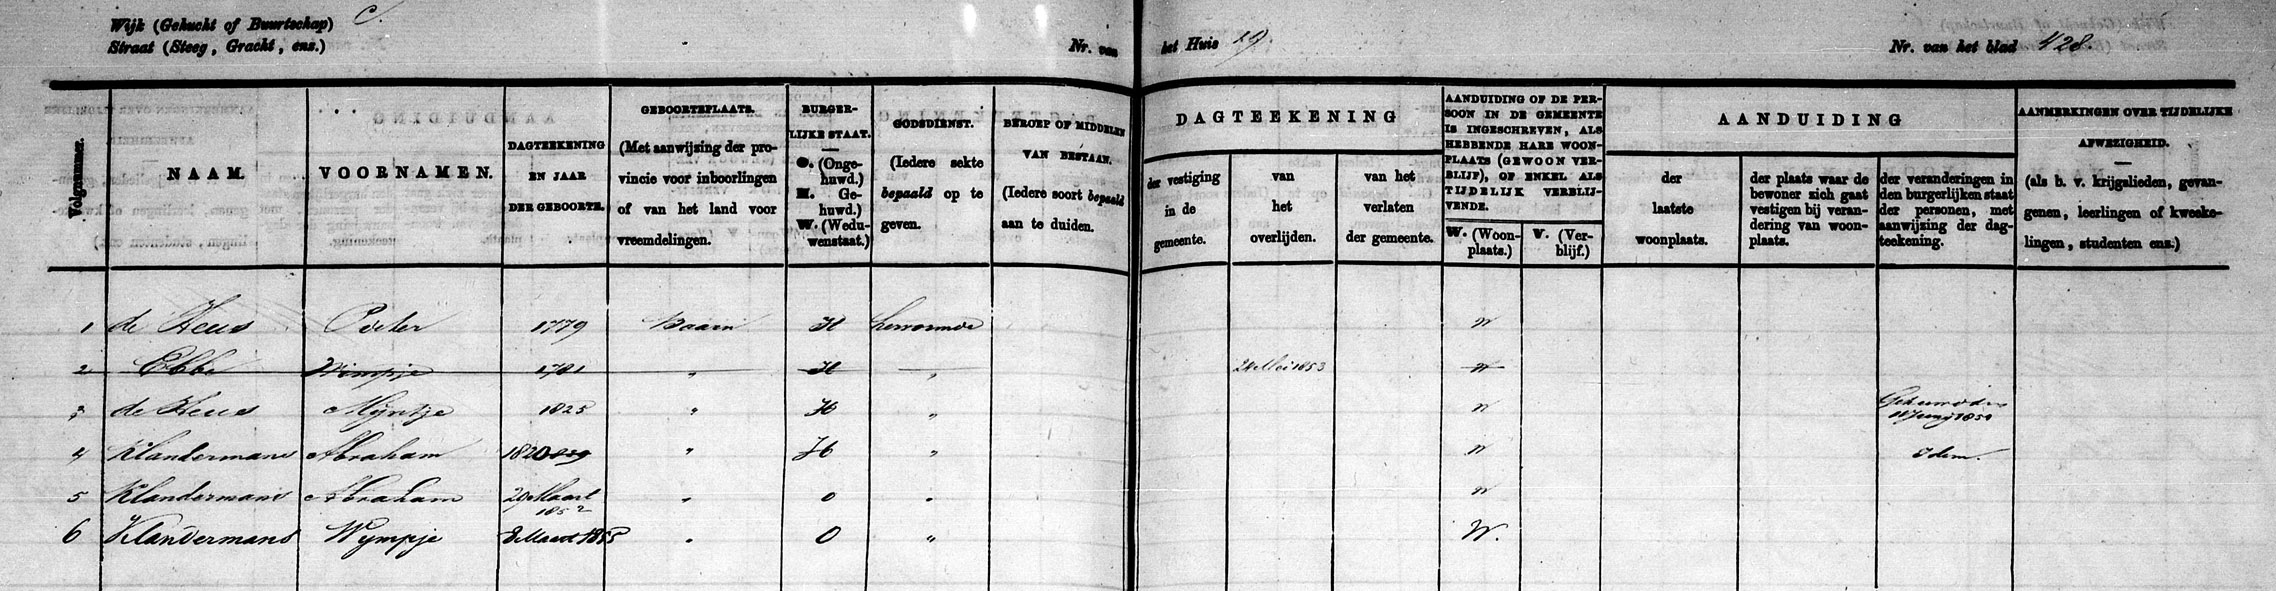 Wijk (Gehucht of Buurtschap) C.
Straat (Steeg, Gracht, enz.) Nr. van het Huis 19. Nr. van het blad 428.
Volgnummer.
NAAM.
VOORNAMEN.
DAGTEEKENING
EN JAAR
DER GEBOORTE.
GEBOORTEPLAATS.
(Met aanwijzing der pro-
vincie voor inboorlingen
of van het land voor
vreemdelingen.
BURGER-
LIJKE STAAT.
O. (Onge-
huwd.)
H. (Ge-
huwd.)
W. (Wedu-
wenstaat.)
GODSDIENST.
(Iedere sekte
bepaald op te
geven.
BEROEP OF MIDDELEN
VAN BESTAAN.
(Iedere soort bepaald
aan te duiden.
DAGTEEKENING
der vestiging
in de
gemeente.
van
het
overlijden.
van het
verlaten
der gemeente.
AANDUIDING OF DE PER-
SOON IN DE GEMEENTE
IS INGESCHREVEN, ALS
HEBBENDE HARE WOON-
PLAATS (GEWOON VER-
BLIJF), OF ENKEL ALS
TIJDELIJK VERBLIJ-
VENDE.
W. (Woon-
plaats.)
V. (Ver-
blijf.)
AANDUIDING
der
laatste
woonplaats.
der plaats waar de
bewoner zich gaat
vestigen bij veran-
dering van woon-
plaats.
der veranderingen in
den burgerlijken staat
der personen, met
aanwijzing der dag-
teekening.
AANMERKINGEN OVER TIJDELIJKE
AFWEZIGHEID.
(als b. v. krijgslieden, gevan-
genen, leerlingen of kweeke-
lingen, studenten enz.)
1 de Heus Pieter 1779 Baarn H hervormde W
2 Ebbe Wimpje 1781 " H " 24 Mei 1853 W
3 de Heus Mijntje 1825 " H " W Gehuwd den
11 Junij 1850
4 Klandermans Abraham 1820 " H " W Idem.
5 Klandermans Abraham 29 Maart
1852 " O " W
6 Klandermans Wympje 8 Maart 1855 " O " W.